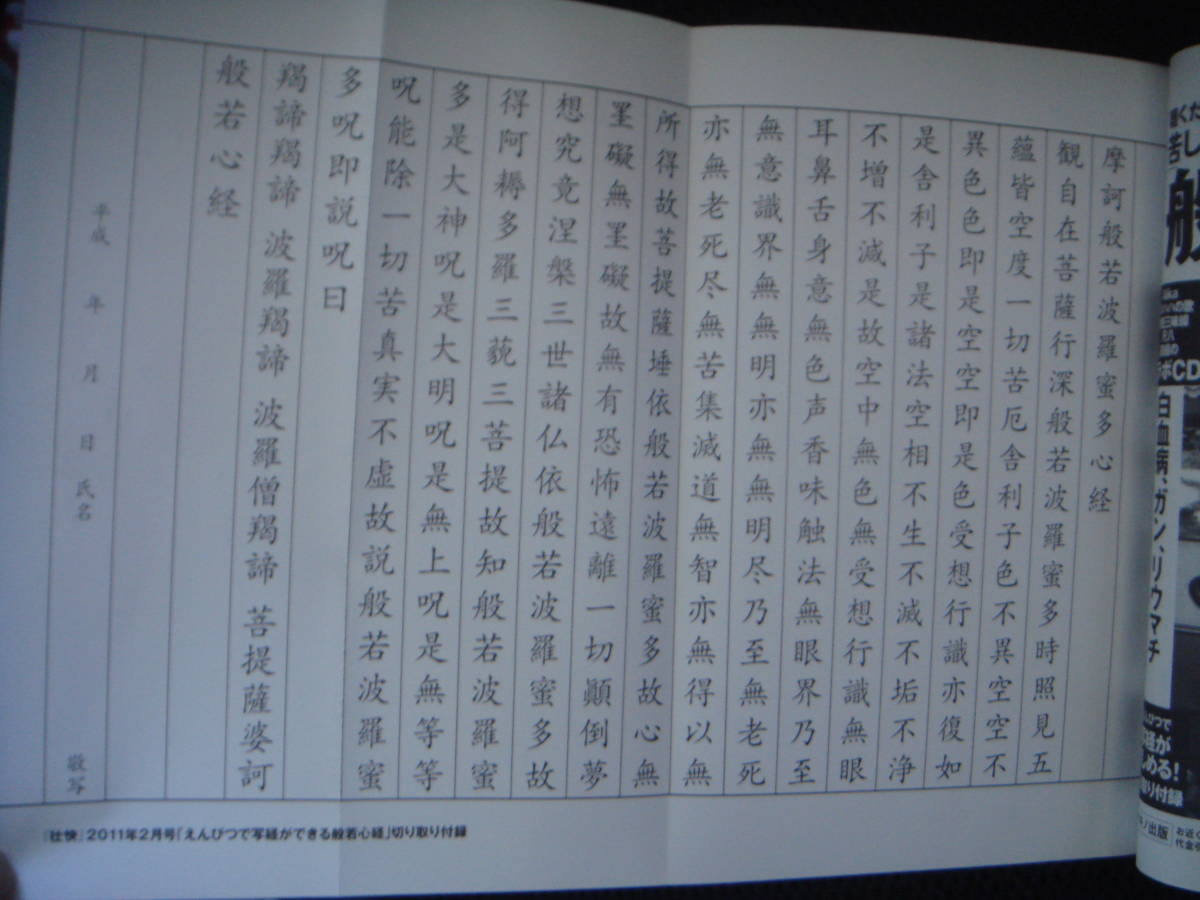 摩訶般若波羅蜜多心経
観自在菩薩行深般若波羅蜜多時照見五
蘊皆空度一切苦厄舎利子色不異空空不
異色色即是空空即是色受想行識亦復如
是舎利子是諸法空相不生不滅不垢不浄
不増不減是故空中無色無受想行識無眼
耳鼻舌身意無色声香味触法無眼界乃至
無意識界無無明亦無無明尽乃至無老死
亦無老死尽無苦集滅道無智亦無得以無
所得故菩提薩埵依般若波羅蜜多故心無
罣礙無罣礙故無有恐怖遠離一切顛倒夢
想究竟涅槃三世諸仏依般若波羅蜜多故
得阿耨多羅三藐三菩提故知般若波羅蜜
多是大神呪是大明呪是無上呪是無等等
呪能除一切苦真実不虚故説般若波羅蜜
多呪即説呪曰
羯諦羯諦 波羅羯諦 波羅僧羯諦 菩提薩婆訶
般若心経
平成 年 月 日 氏名 敬写
『壮快』2011年2月号「えんぴつで写経ができる般若心経」切り取り付録
苦し
般
CD
白血病、ガン、リウマチ
んぴつで
写経が
しめる!
取り付録
ノ出版
お近く
代金引